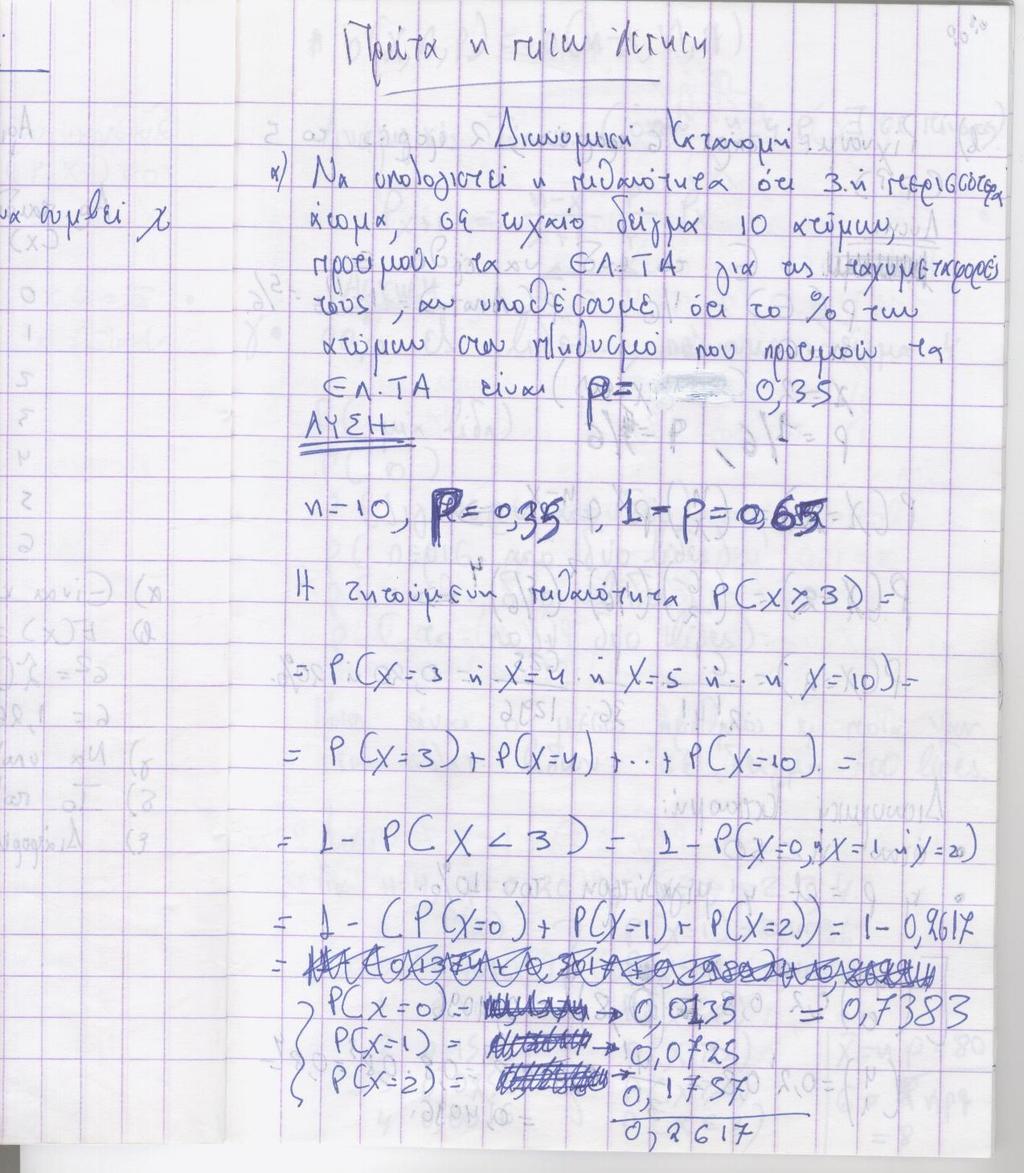 Πρώτα η τρίτη Άσκηση
Διωνυμική Κατανομή.
α) Να υπολογιστεί η πιθανότητα ότι 3 ή περισσότερα
άτομα, σε τυχαίο δείγμα 10 ατόμων,
προτιμούν τα ΕΛ.ΤΑ για τις ταχυμεταφορές
τους, αν υποθέσουμε ότι το % των
ατόμων στον πληθυσμό που προτιμούν τα
ΕΛ.ΤΑ είναι p= 0,35
ΛΥΣΗ
n=10, p=0,35, 1-p=0,65
Η ζητούμενη πιθανότητα P(X≥3)=
=P(X=3 ή X=4 ή X=5 ή... ή X=10)=
= P(X=3)+P(X=4)+...+P(X=10) =
= 1-P(X<3) = 1-P(X=0 ή X=1 ή X=2)
= 1-(P(X=0)+P(X=1)+P(X=2))=1-0,2617
=
P(X=0)= → 0,0135 = 0,7383
P(X=1) = → 0,0725
P(X=2) = → 0,1757
0,2617
να συμβεί x